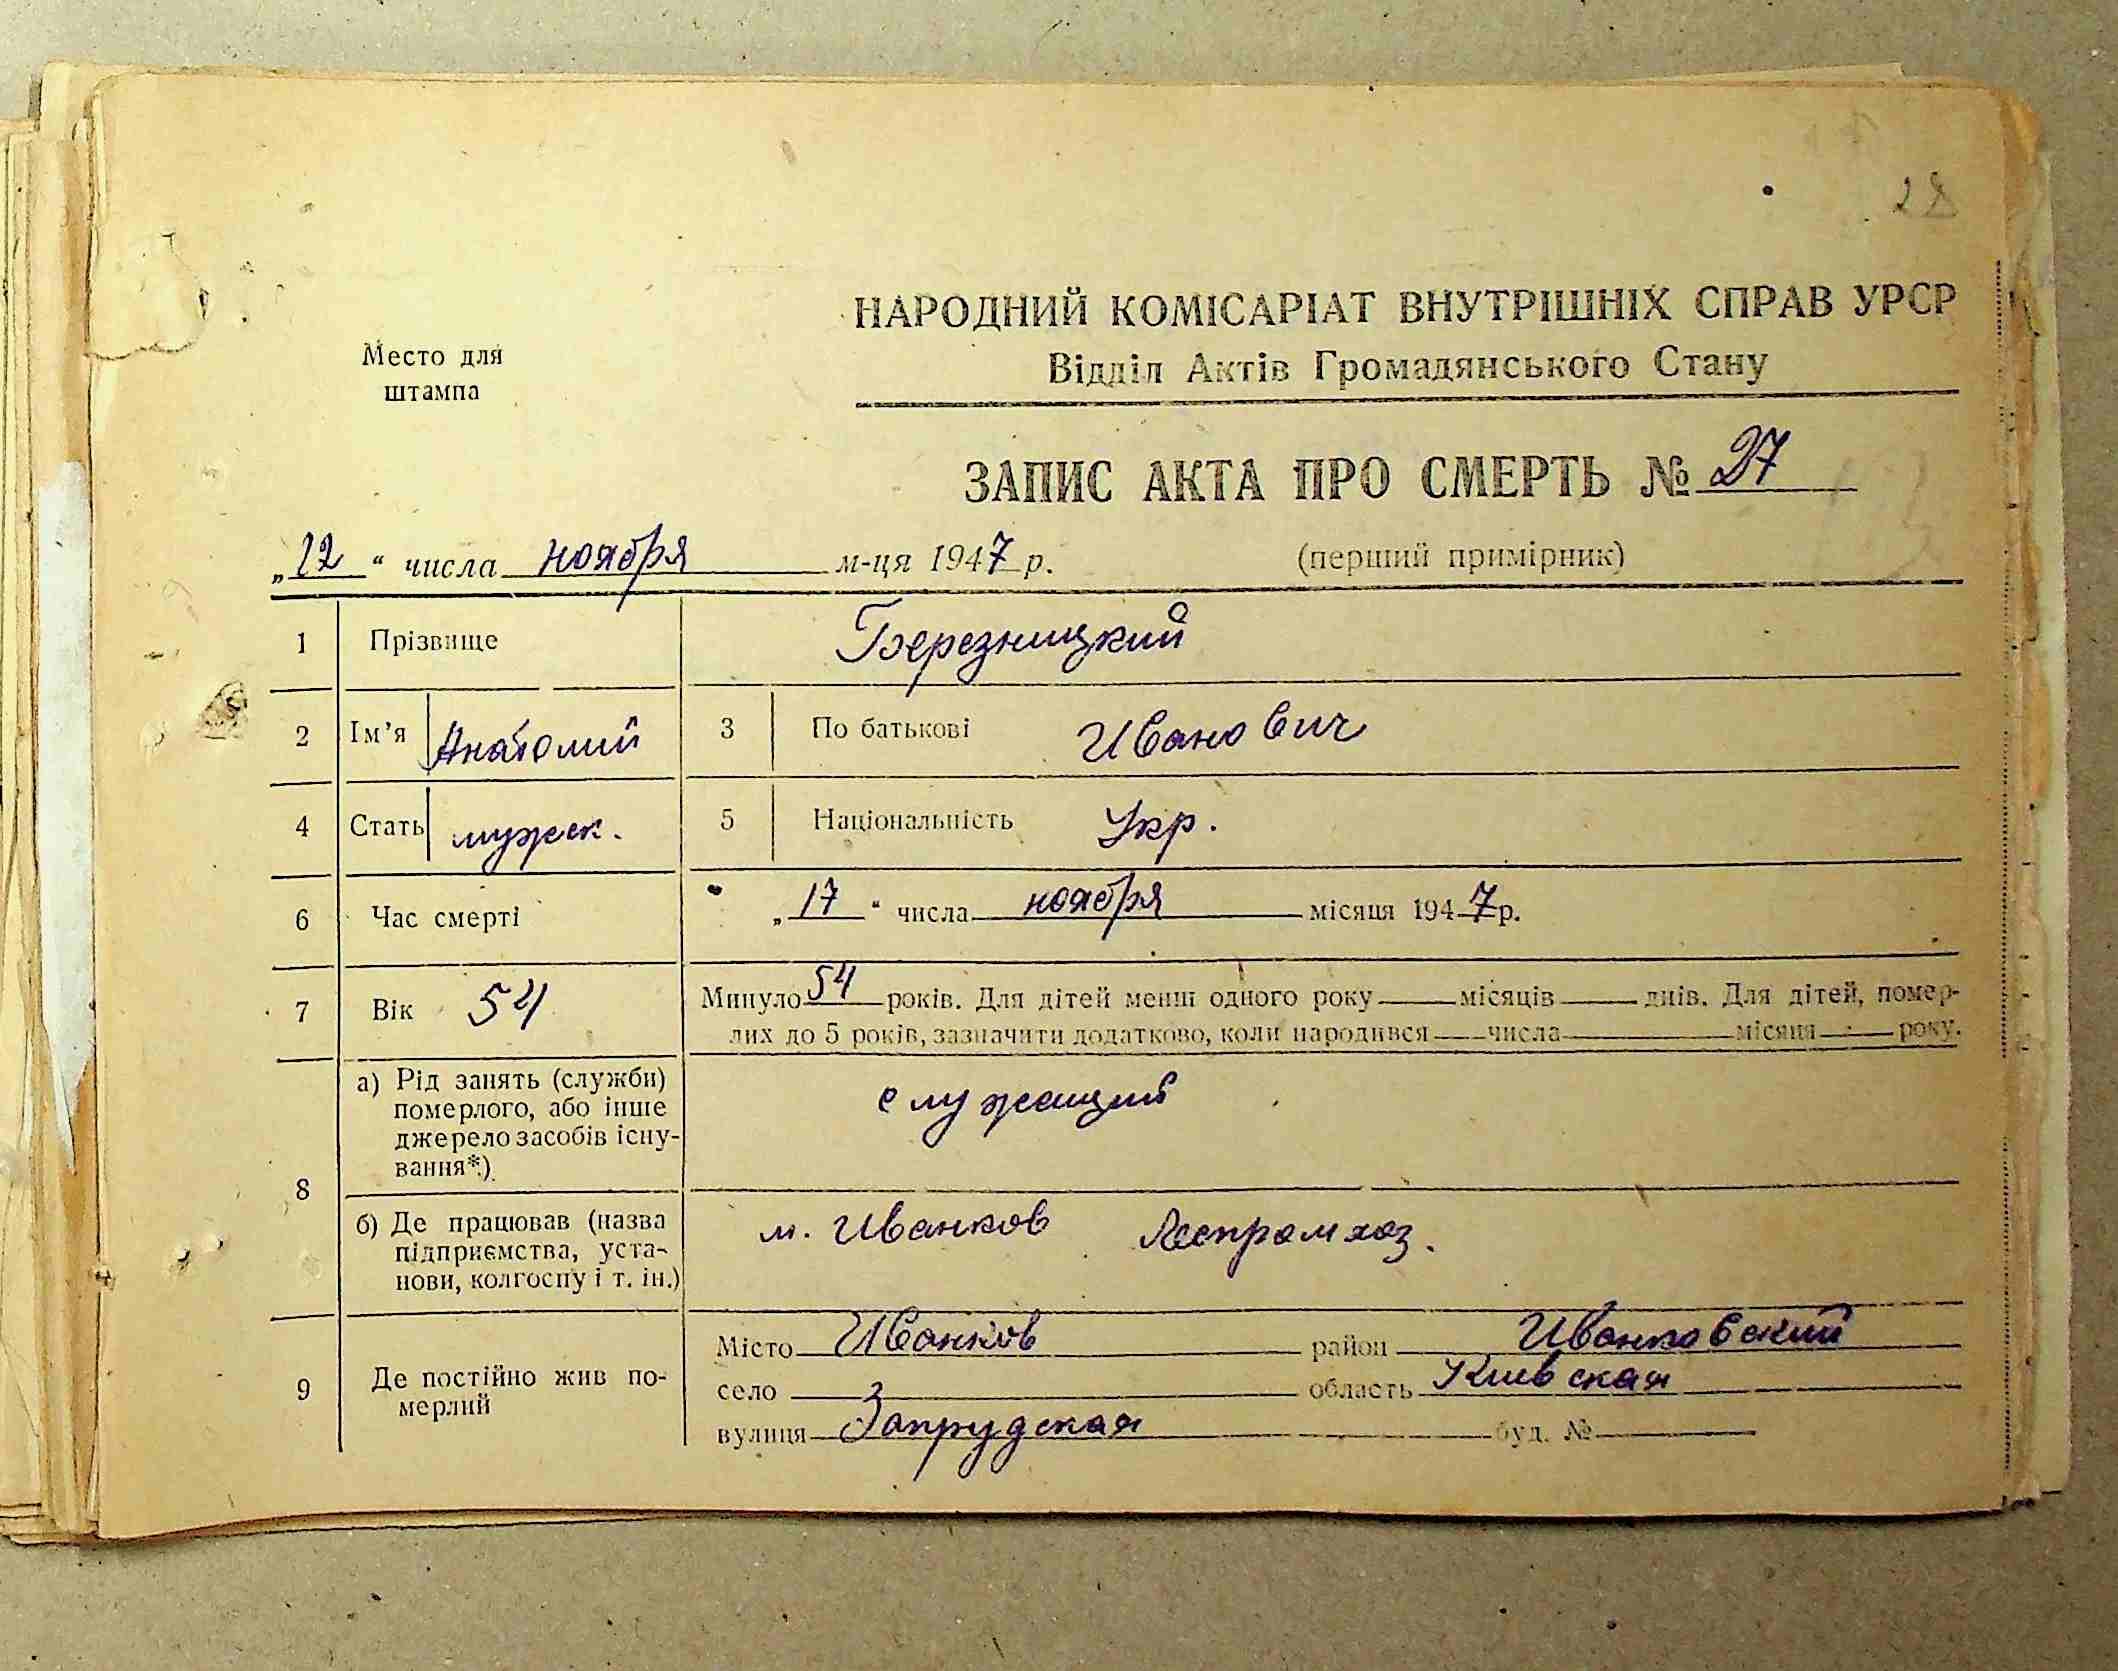 28
НАРОДНИЙ КОМІСАРІАТ ВНУТРІШНІХ СПРАВ УРСР
Место для
штампа
Відділ Актів Громадянського Стану
ЗАПИС АКТА ПРО СМЕРТЬ № 27
„12“ числа ноября м-ця 1947 р. (перший примірник)
1 Прізвище Березницкий
2 Ім'я Анатолий 3 По батькові Иванович
4 Стать мужск. 5 Національність Укр.
6 Час смерті „17“ числа ноября місяця 1947 р.
7 Вік 54 Минуло 54 років. Для дітей менш одного року місяців днів. Для дітей, помер-
лих до 5 років, зазначити додатково, коли народився числа місяця року.
8 а) Рід занять (служби)
померлого, або інше
джерело засобів існу-
вання*.)
служащий
б) Де працював (назва
підприємства, уста-
нови, колгоспу і т. ін.)
м. Иванков Леспромхоз.
9 Де постійно жив по-
мерлий
Місто Иванков район Иванковский
село область Киевская
вулиця Запрудская буд. №